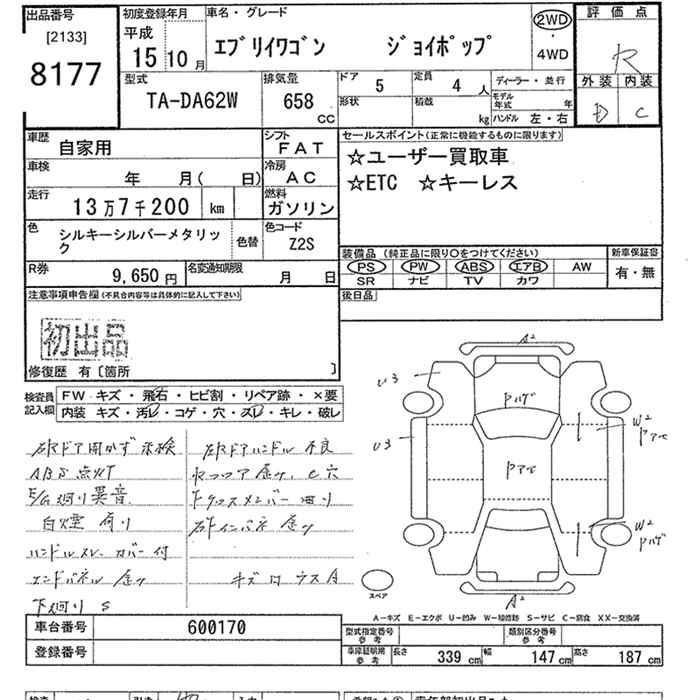 出品番号
[2133]
8177
初度登録年月
平成
15 10 月
車名・グレード
エブリイワゴン ジョイポップ
2WD
・
4WD
評価点
R
外装 内装
D C
型式
TA-DA62W
排気量
658
CC
ドア
5
定員
4 人
ディーラー・並行
モデル年式 年
形状
積載
kg
ハンドル 左・右
車歴
自家用
シフト
FAT
車検
年 月( 日)
冷房
AC
走行
13万7千200 km
燃料
ガソリン
色
シルキーシルバーメタリック
色替
色コード
Z2S
R券
9,650 円
名変通知期限
月 日
セールスポイント(正常に機能するものに限ります)
☆ユーザー買取車
☆ETC ☆キーレス
装備品 (純正品に限り○をつけてください)
PS PW ABS エアB AW
SR ナビ TV カワ
新車保証書
有・無
後日品
注意事項申告欄(不具合内容等は具体的に記入して下さい)
初出品
修復歴 有〔箇所 〕
検査員記入欄
FW キズ・飛石・ヒビ割・リペア跡・×要
内装 キズ・汚レ・コゲ・穴・スレ・キレ・破レ
右Rドア開かず 未検
ABS 点灯
E/G廻り異音
白煙有り
ハンドルスレ カバー付
エンドパネル
下廻り S
右Rドアハンドル不良
下クロスメンバー
A²
U3
U3
Pハゲ
Pアセ
W²
Pアセ
W²
Pハゲ
A²
スペア
A-キズ E-エクボ U-凹み W-補修跡 S-サビ C-腐食 XX-交換済
車台番号
600170
登録番号
型式指定番号
参考
類別区分番号
参考
車庫証明用
参考
長さ 339 cm 幅 147 cm 高さ 187 cm